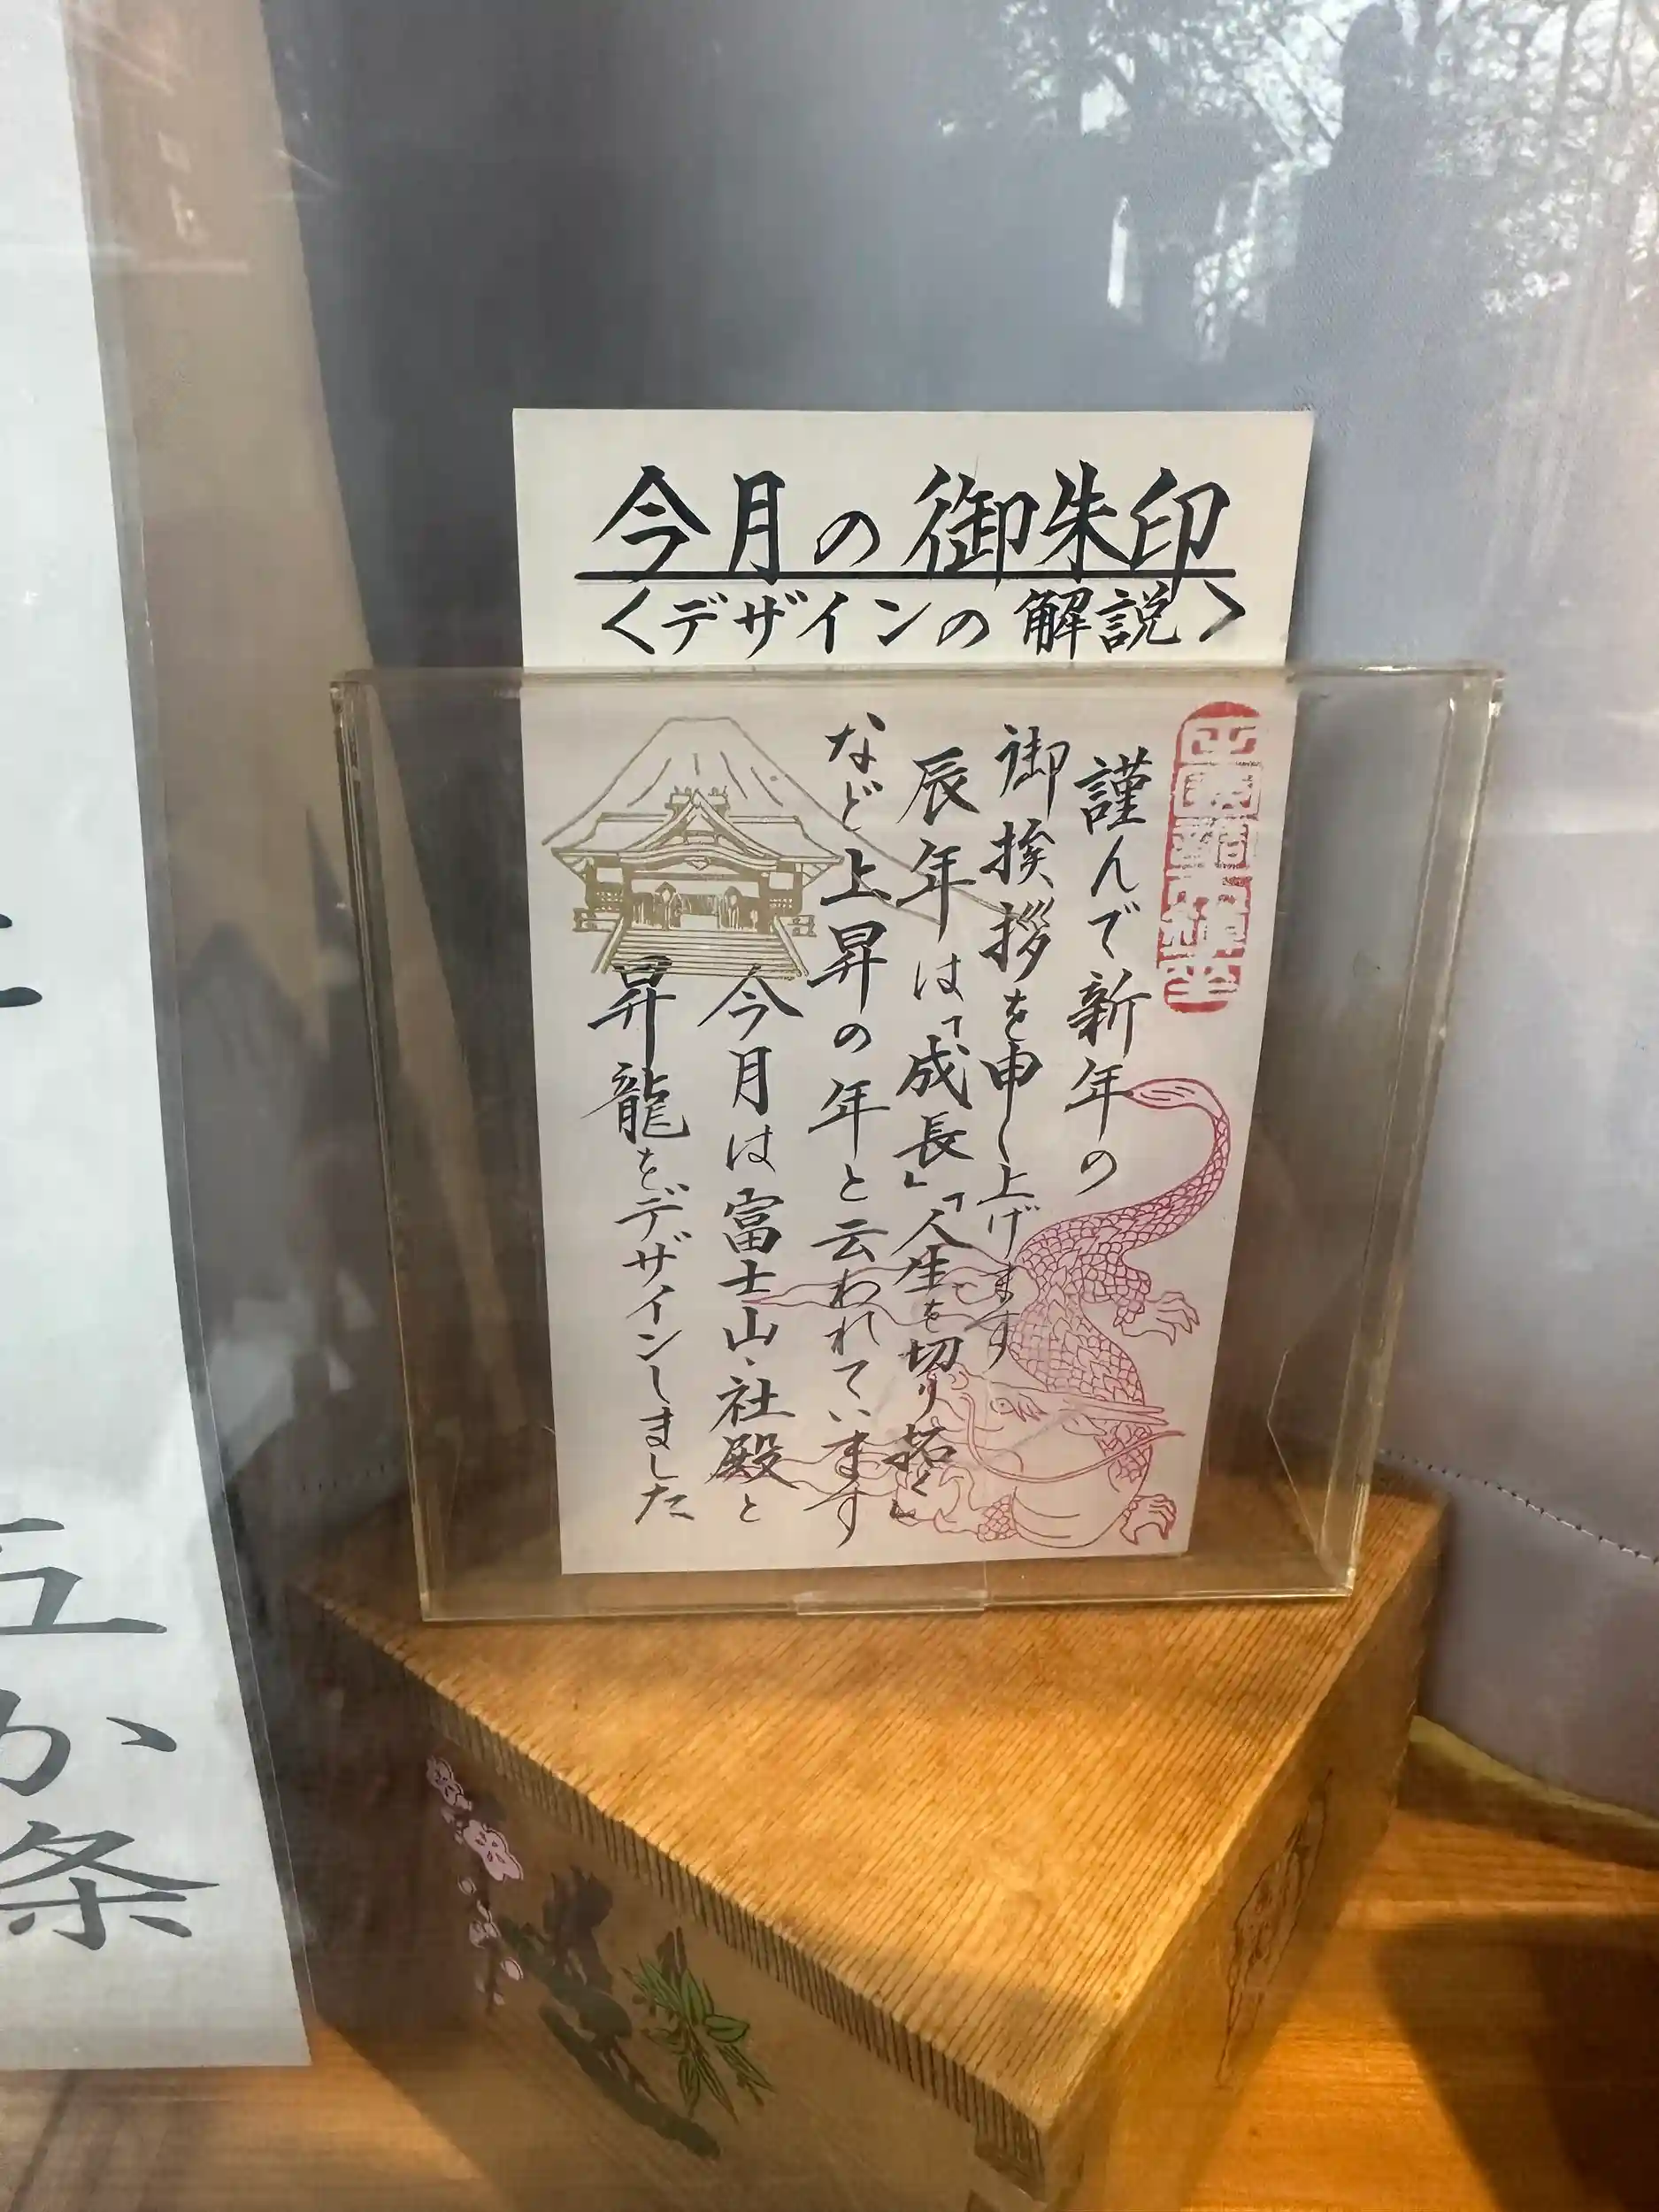 今月の御朱印
＜デザインの解説＞
謹んで新年の
御挨拶を申し上げます
辰年は「成長」「人生を切り拓く」
など上昇の年と云われています
今月は富士山・社殿と
昇龍をデザインしました
五か条